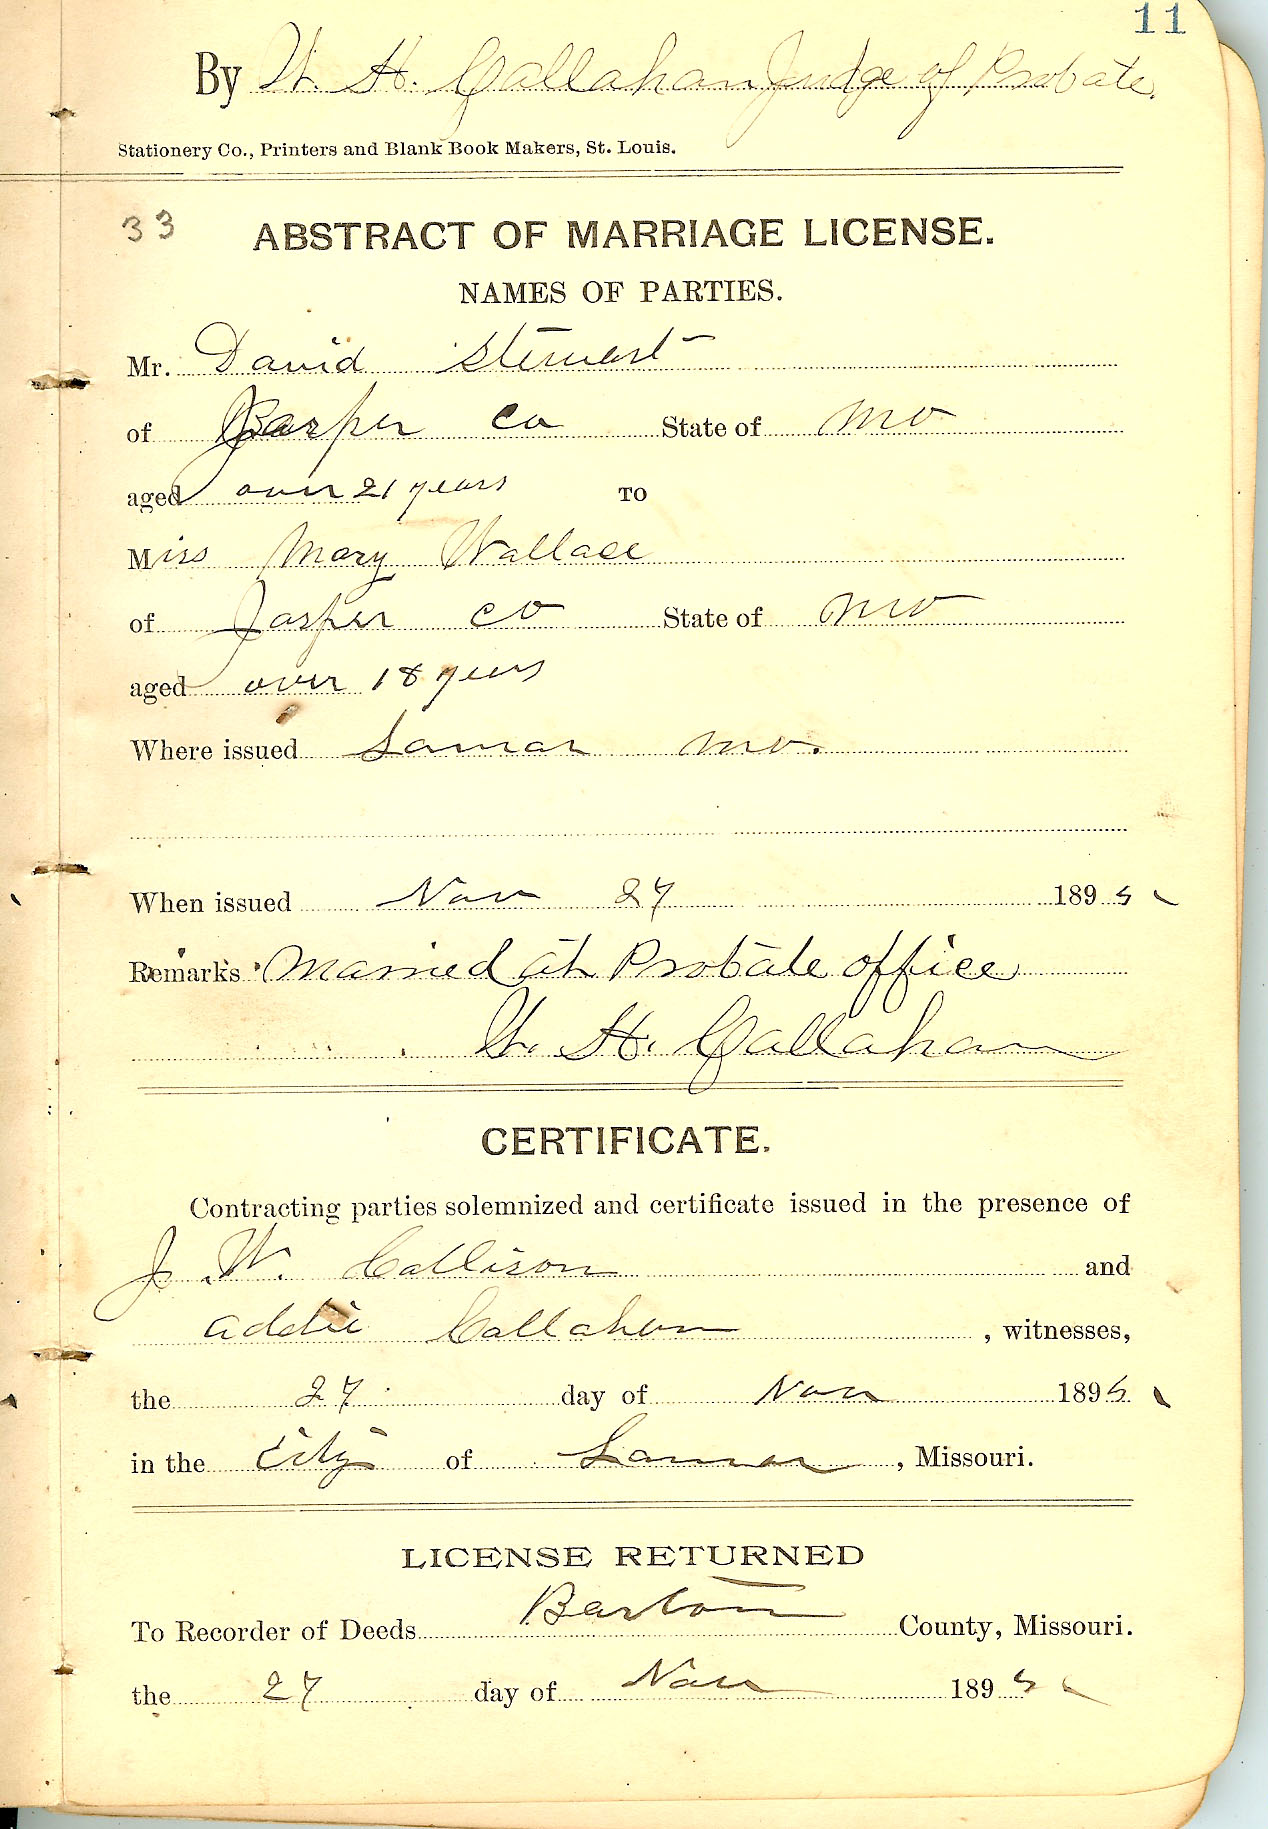 11
By W. H. Callahan Judge of Probate.
Stationery Co., Printers and Blank Book Makers, St. Louis.
33
ABSTRACT OF MARRIAGE LICENSE.
NAMES OF PARTIES.
Mr. David Stewart
of Jasper Co State of Mo
aged over 21 years TO
Miss Mary Wallace
of Jasper Co State of Mo
aged over 18 years
Where issued Lamar Mo.
When issued Nov 27 1895
Remarks Married at Probate office
W. H. Callahan
CERTIFICATE.
Contracting parties solemnized and certificate issued in the presence of
J. W. Collison and
Addie Callahan, witnesses,
the 27 day of Nov 1895
in the City of Lamar, Missouri.
LICENSE RETURNED
To Recorder of Deeds Barton County, Missouri.
the 27 day of Nov 1895